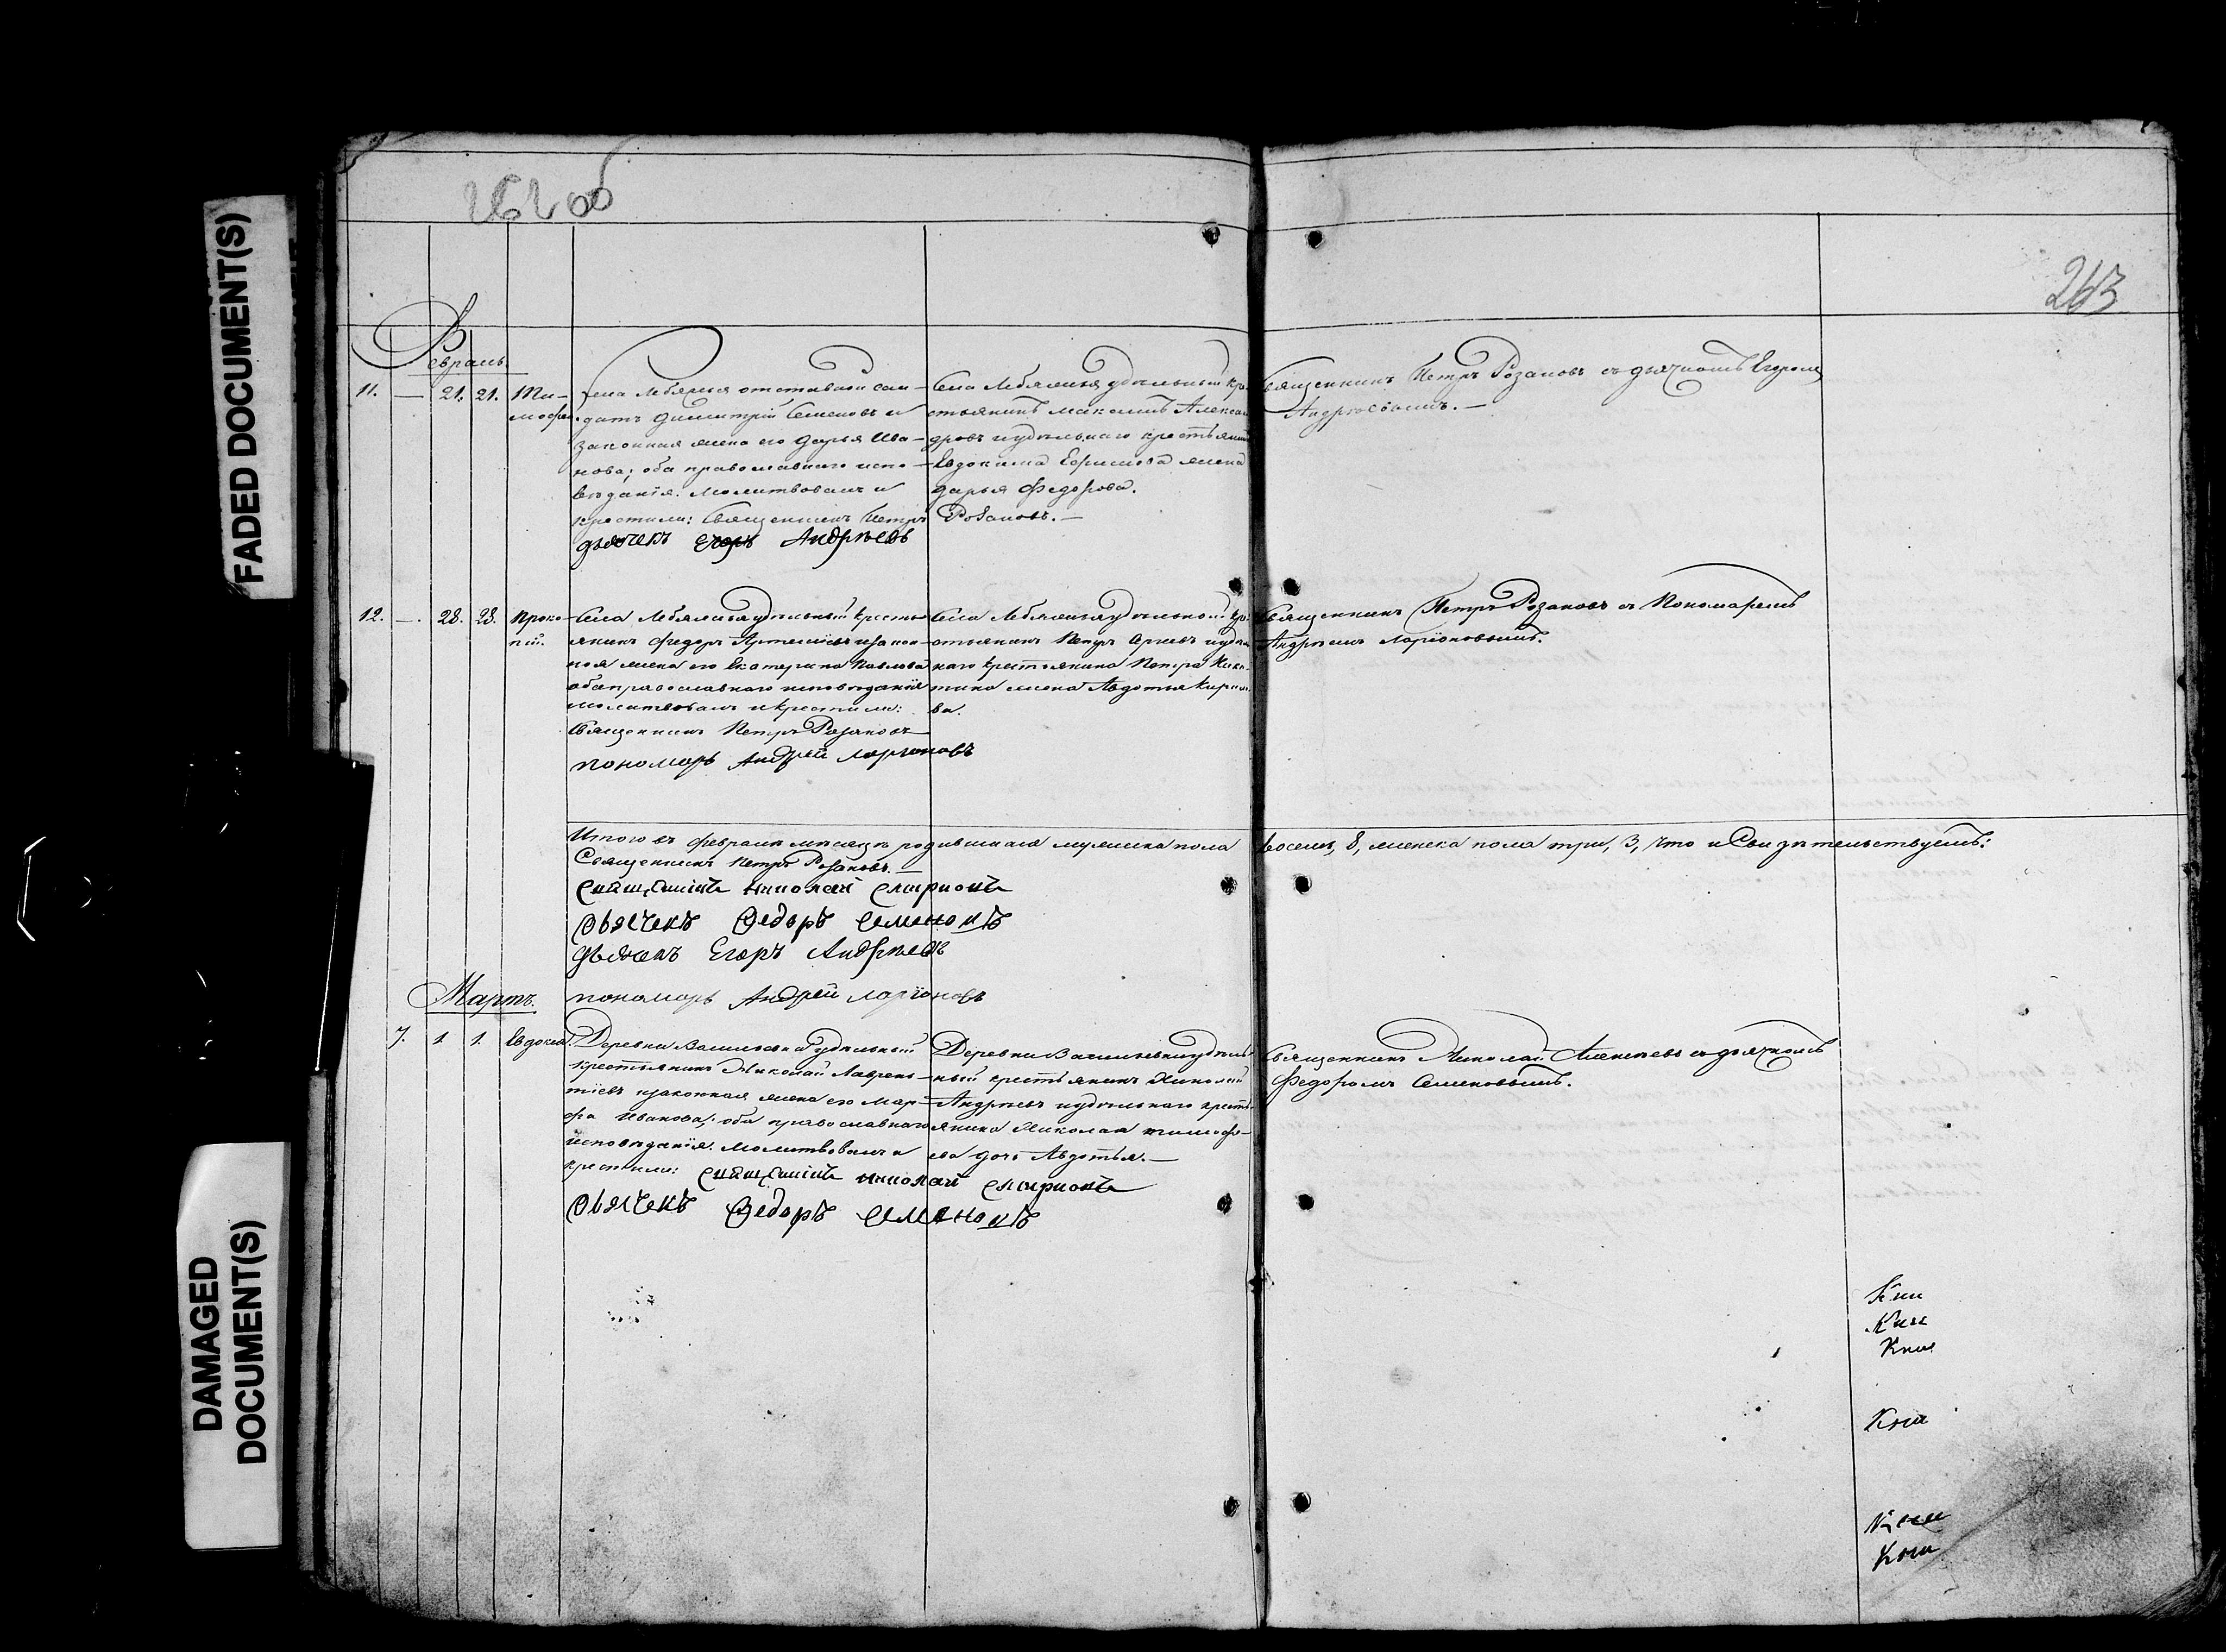 FADED DOCUMENT(S)
DAMAGED
DOCUMENT(S)
262 об
263
Февраль.
11. — 21. 21. Ти-
мофей.
Села Лебяжья отставной сол-
датъ Димитрій Семеновъ и
законная жена его Дарья Ива-
нова; оба православнаго испо-
веданія. Молитвовалъ и
крестили: Священникъ Петръ Розановъ. —
дьячекъ Егоръ Андреевъ
Села Лебяжья удѣльный кре-
стьянинъ Максимъ Алексан-
дровъ и удѣльнаго крестьянина
Евдокима Ефимова жена
Дарья Федорова.
Священникъ Петръ Розановъ съ дьячкомъ Егоромъ
Андреевымъ. —
12. — 28. 28. Проко-
пій.
Села Лебяжья удѣльный кресть-
янинъ Федоръ Артемьевъ и закон-
ная жена его Екатерина Павлова
оба православнаго исповѣданія
молитвовалъ и крестили:
Священникъ Петръ Розановъ
пономарь Андрей Ларіоновъ
Села Лебяжья удѣльной кре-
стьянинъ Петръ и удѣль-
наго крестьянина Петра Ники-
тина жена Авдотья
Священникъ Петръ Розановъ съ Пономаремъ
Андреемъ Ларіоновымъ.
Итого въ февралѣ мѣсяцѣ родившихся мужеска пола восемь, 8, женска пола три, 3, что и Свидѣтельствуемъ:
Священникъ Петръ Розановъ. —
Священникъ Николай
Дьячекъ Федоръ Семеновъ
Дьячекъ Егоръ Андреевъ
пономарь Андрей Ларіоновъ
Мартъ.
7. 1. 1. Евдокія.
Деревни Васильевки удѣльный
крестьянинъ Николай Лаврен-
тіевъ и законная жена его Мар-
фа Иванова; оба православнаго
исповѣданія. Молитвовалъ и
крестили: Священникъ Николай
Дьячекъ Федоръ Семеновъ
Деревни Васильевки удѣль-
ный крестьянинъ Николай
Андреевъ и удѣльнаго кресть-
янина Николая Тимофе-
ева дочь Авдотья. —
Священникъ Николай съ дьячкомъ
Федоромъ Семеновымъ.